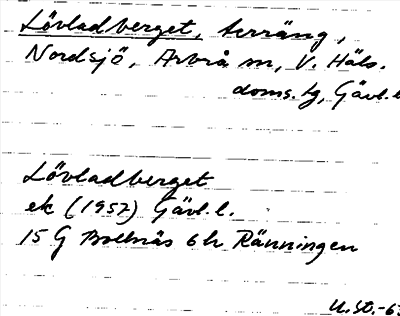 Lövladberget, terräng,
Nordsjö, Arbrå sn, V. Häls.
doms. tg, Gävl. l
Lövladberget
ek (1957) Gävl. l.
15 G Bollnäs 6 h Ränningen
U. St. -63